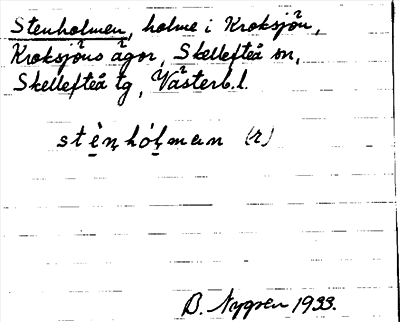 Stenholmen, holme i Kroksjön,
Kroksjöns ägor, Skellefteå sn,
Skellefteå tg, Västerb. l.
stè̱n̥hól̥man (r)
B. Nygren 1933.